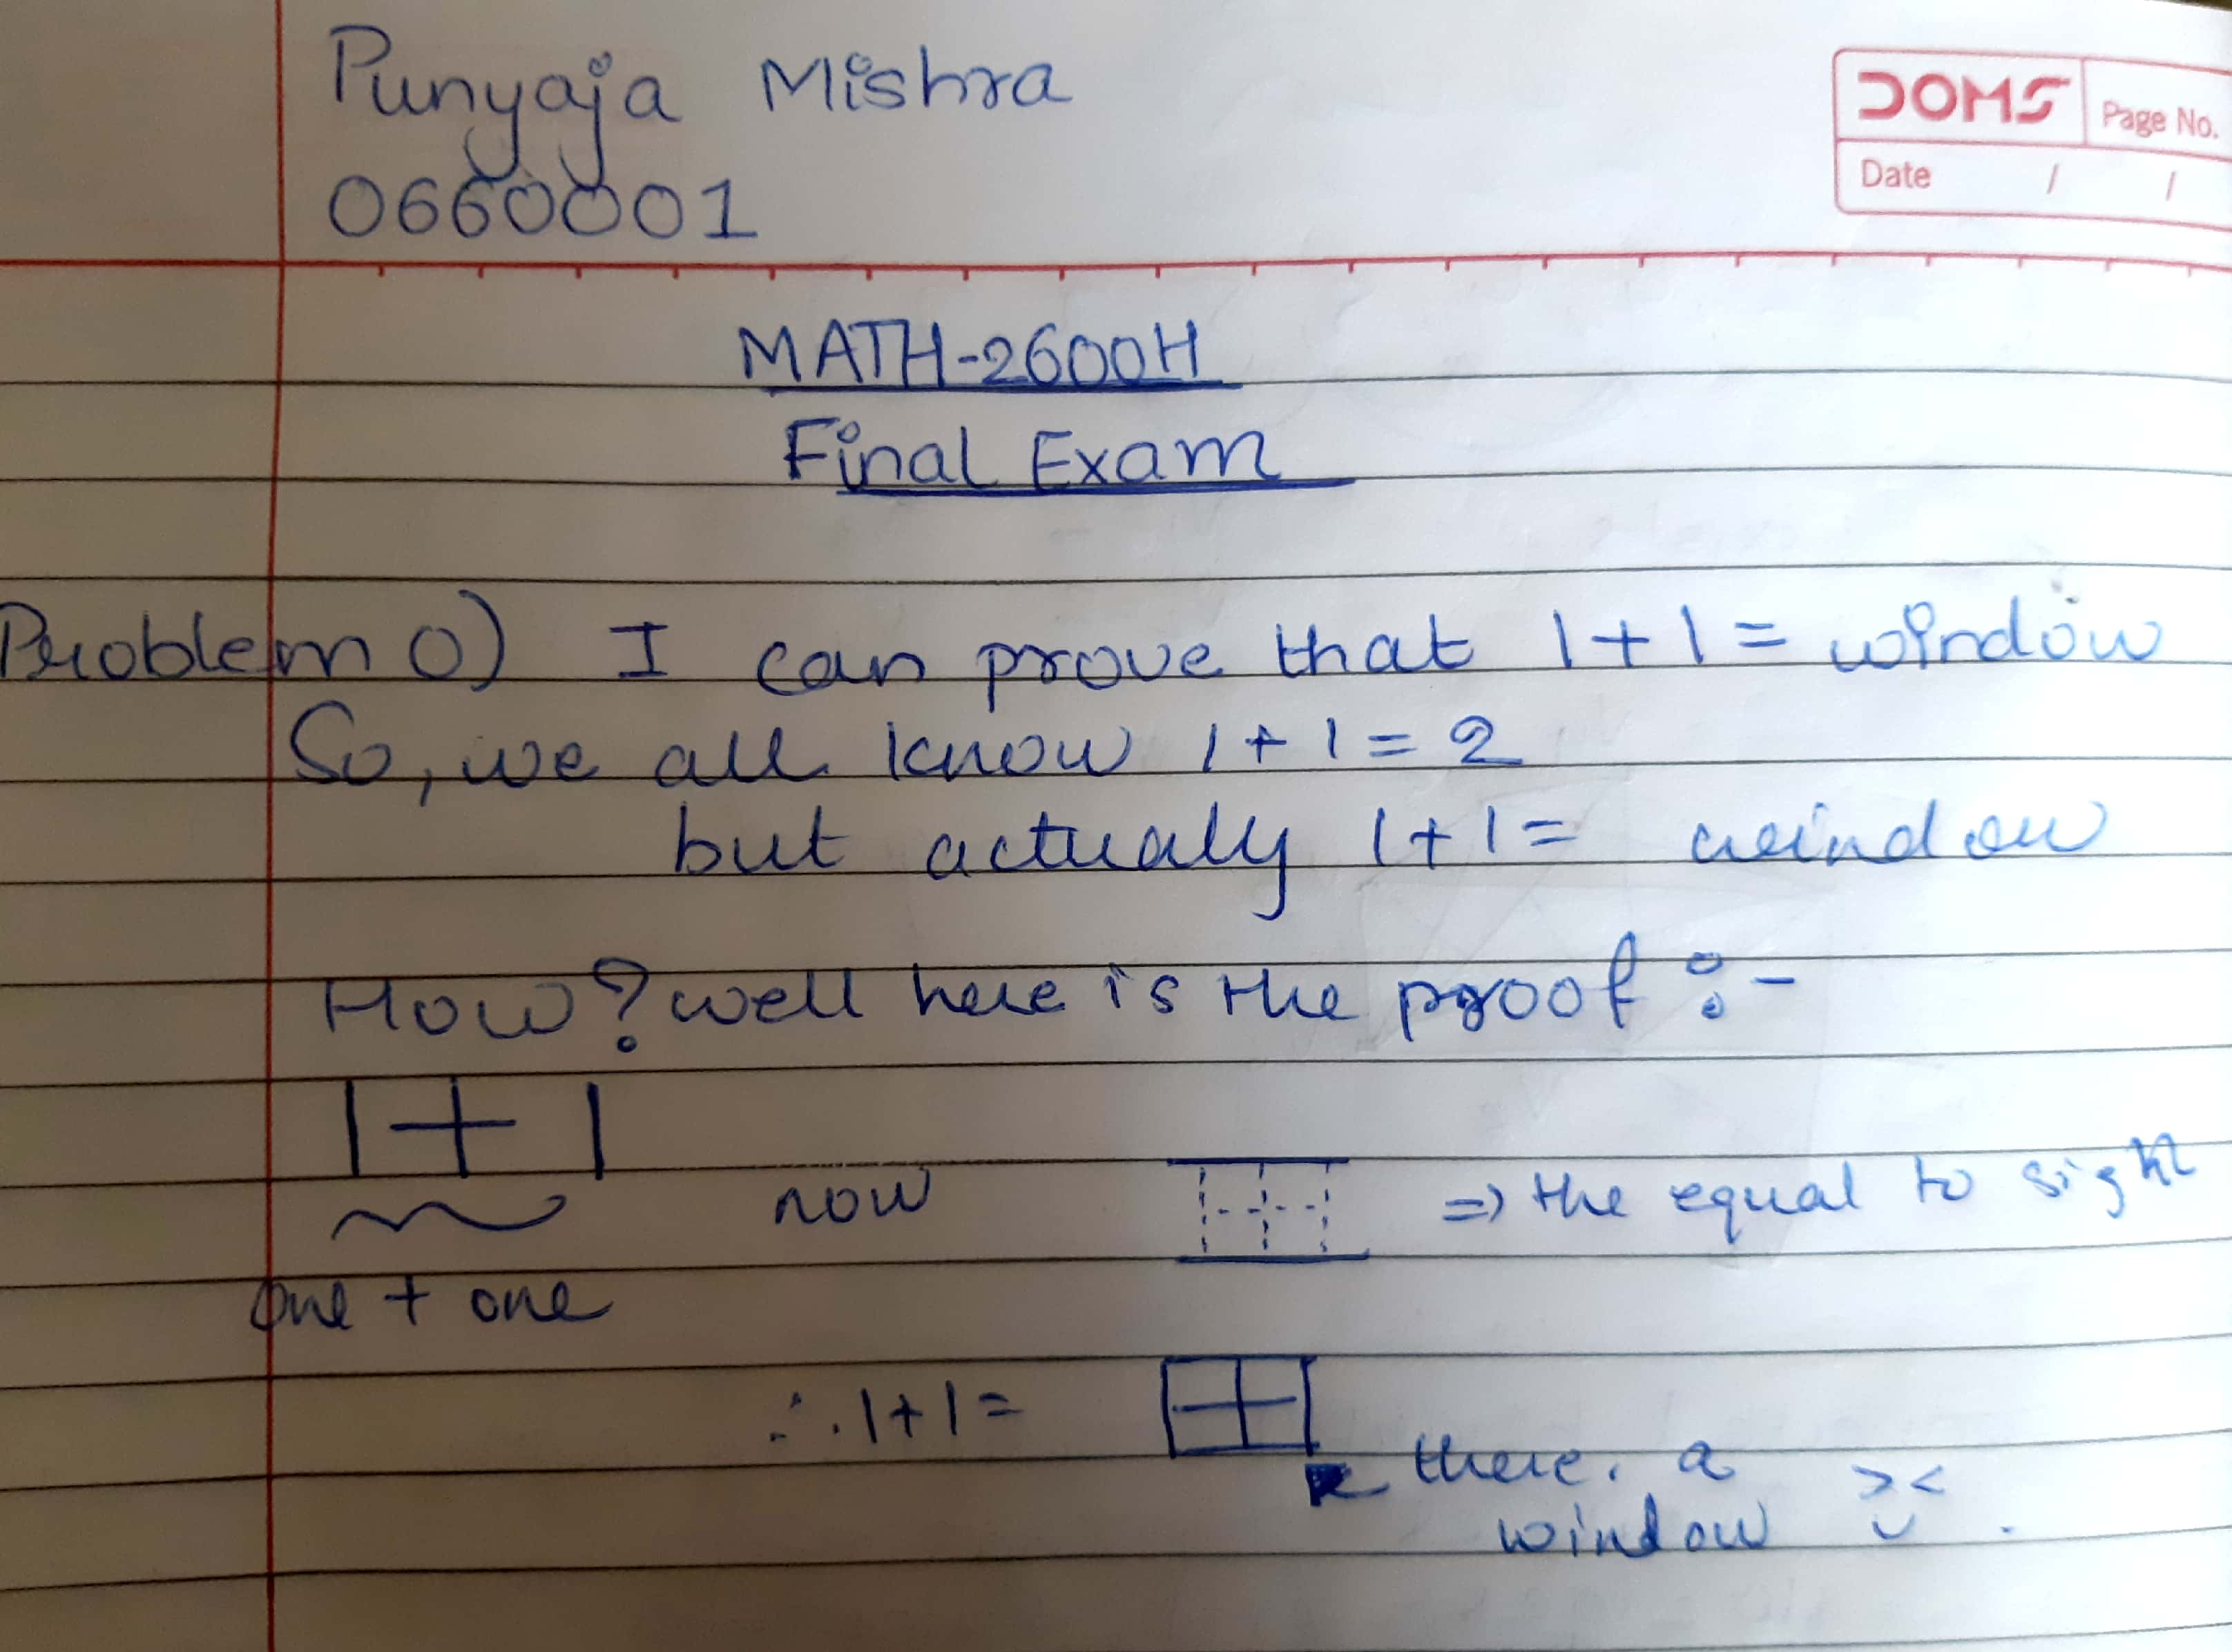 Punyaja Mishra
0660001
DOMS
Page No.
Date / /
MATH-2600H
Final Exam
Problem 0) I can prove that 1+1 = window
So, we all know 1+1=2
but actually 1+1= window
How? well here is the proof :-
1+1
now
=> the equal to sight
one + one
∴ 1+1=
there. a
window